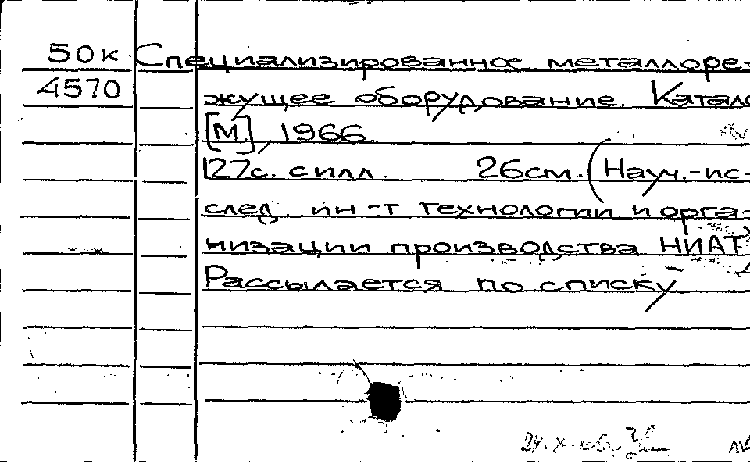 50к Специализированное металлоре-
4570 жущее оборудование. Катало
[М.], 1966
127с. с илл. 26см. (Науч.-ис-
след. ин-т технологии и орга-
низации производства НИАТ
Рассылается по списку